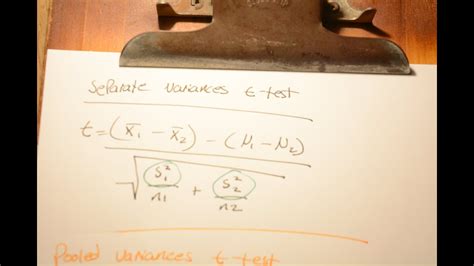 Separate variances t-test
t = (x̄₁ - x̄₂) - (μ₁ - μ₂)
√ s₁²/n1 + s₂²/n2
Pooled variances t-test